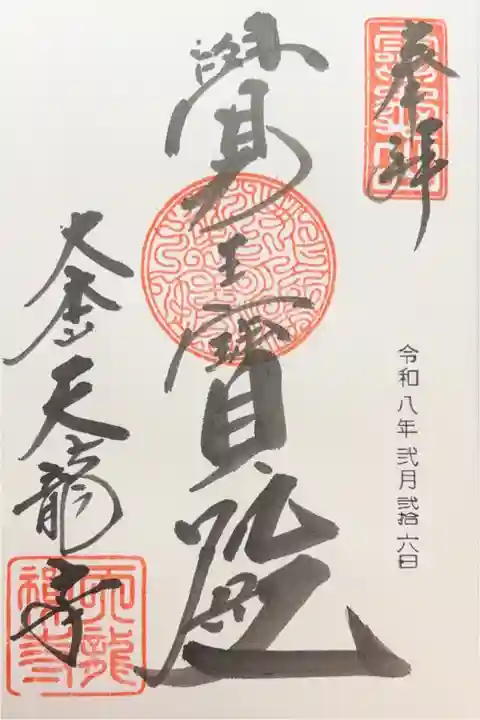 奉拝
令和八年弐月弐拾六日
覺王寶殿
大本山天龍寺